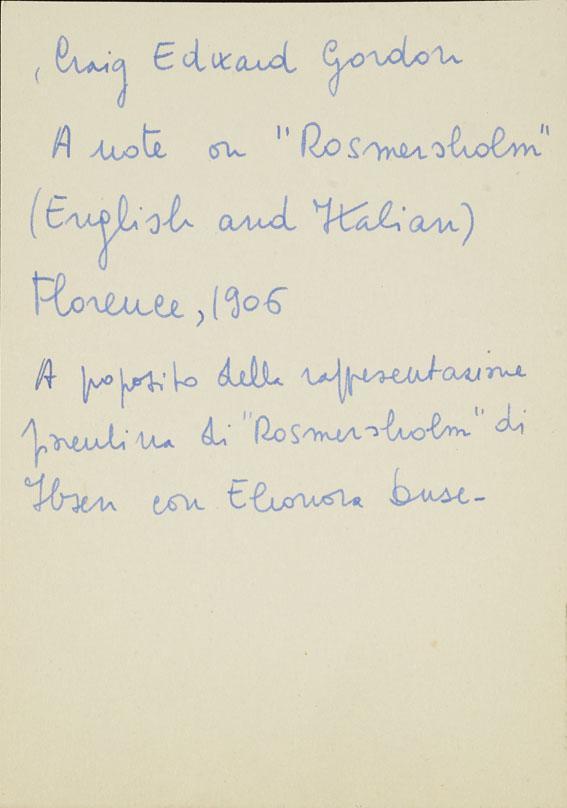 , Craig Edward Gordon
A note on "Rosmersholm"
(English and Italian)
Florence, 1906
A proposito della rappresentazione
fiorentina di "Rosmersholm" di
Ibsen con Eleonora Duse-